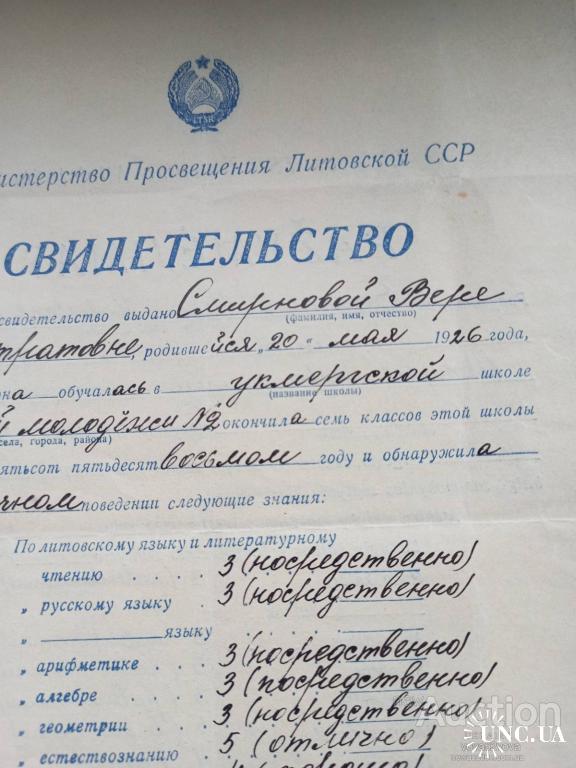 LTSR
истерство Просвещения Литовской ССР
СВИДЕТЕЛЬСТВО
свидетельство выдано Смирновой Вере
(фамилия, имя, отчество)
тратовне, родившейся „20“ мая 1926 года,
она обучалась в укмергской школе
(название школы)
й молодёжи №2 окончила семь классов этой школы
села, города, района)
ятьсот пятьдесят восьмом году и обнаружила
чном поведении следующие знания:
По литовскому языку и литературному
чтению . . . . 3 (посредственно)
„ русскому языку . 3 (посредственно)
„ ____________ языку .
„ арифметике . . . 3 (посредственно)
„ алгебре . . . . 3 (посредственно)
„ геометрии . . . 3 (посредственно)
„ естествознанию . 5 (отлично)
Auction
UNC.UA